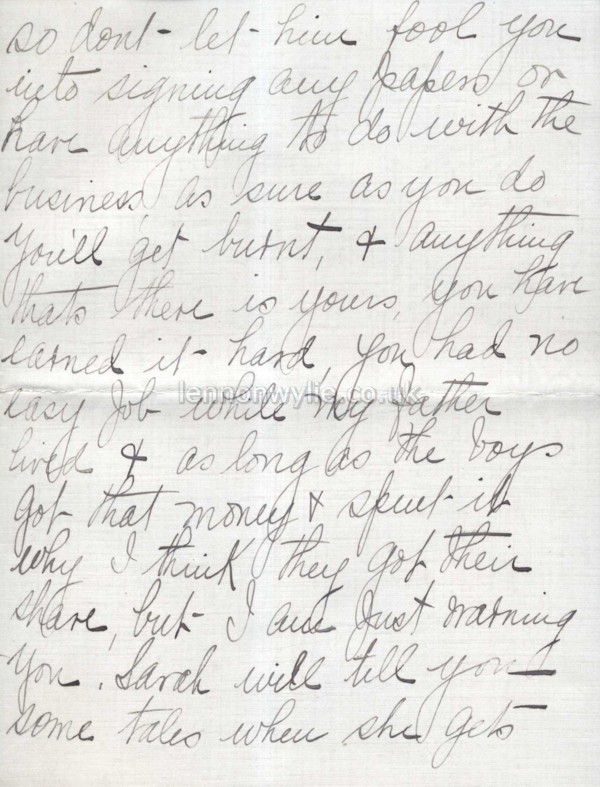 so dont let him fool you
into signing any papers or
have anything to do with the
business, as sure as you do
you'll get burnt, & anything
thats there is yours, you have
earned it hard, you had no
lennonwylie.co.uk
easy job while my father
lived & as long as the boys
got that money & spent it
why I think they got their
share, but I am just warning
you. Sarah will tell you
some tales when she gets